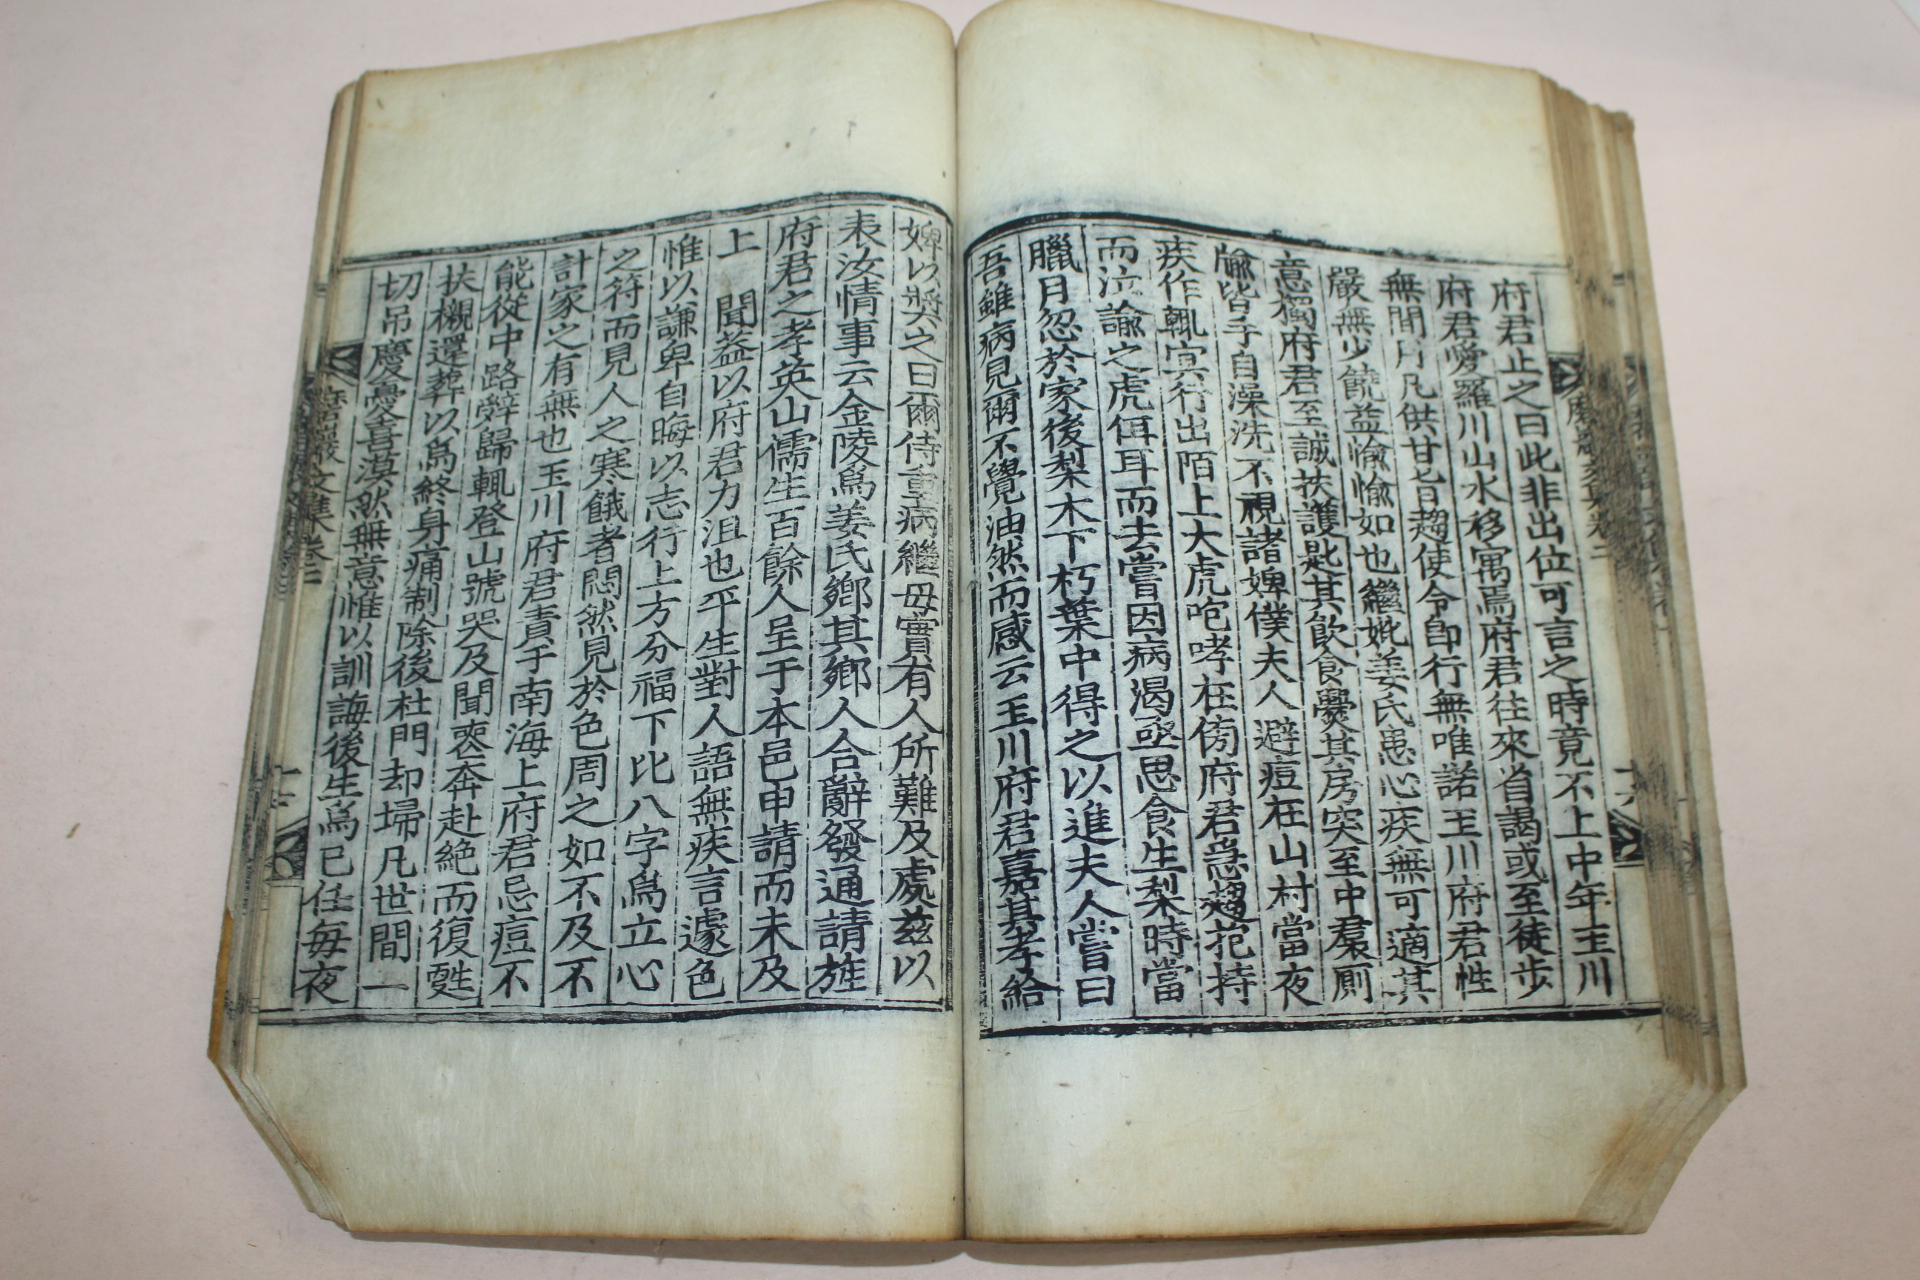 府君止之曰此非出位可言之時竟不上中年玉川
府君愛羅川山水移寓焉府君往來省謁或至徒步
無間月凡供甘旨趨使令卽行無唯諾玉川府君性
嚴無少饒益愉愉如也繼妣姜氏患心疾無可適其
意獨府君至誠扶護匙其飮食爨其房突至中裙廁
牏皆手自澡洗不視諸婢僕夫人避痘在山村當夜
疾作輒宜行出陌上大虎咆哮在傍府君急趨抱持
而泣諭之虎佴耳而去嘗因病渴亟思食生梨時當
臘月忽於家後梨木下朽葉中得之以進夫人嘗曰
吾雖病見爾不覺油然而感云玉川府君嘉其孝給
婢以奬之曰爾侍重病繼母實有人所難及處玆以
表汝情事云金陵爲姜氏鄕其鄕人合辭發通請旌
府君之孝英山儒生百餘人呈于本邑申請而未及
上 聞蓋以府君力沮也平生對人語無疾言遽色
惟以謙卑自晦以志行上方分福下比八字爲立心
之符而見人之寒餓者悶然見於色周之如不及不
計家之有無也玉川府君責于南海上府君忌痘不
能從中路辭歸輒登山號哭及聞喪奔赴絶而復甦
扶櫬還葬以爲終身痛制除後杜門却埽凡世間一
切吊慶憂喜漠然無意惟以訓誨後生爲已任每夜
巖文集卷二